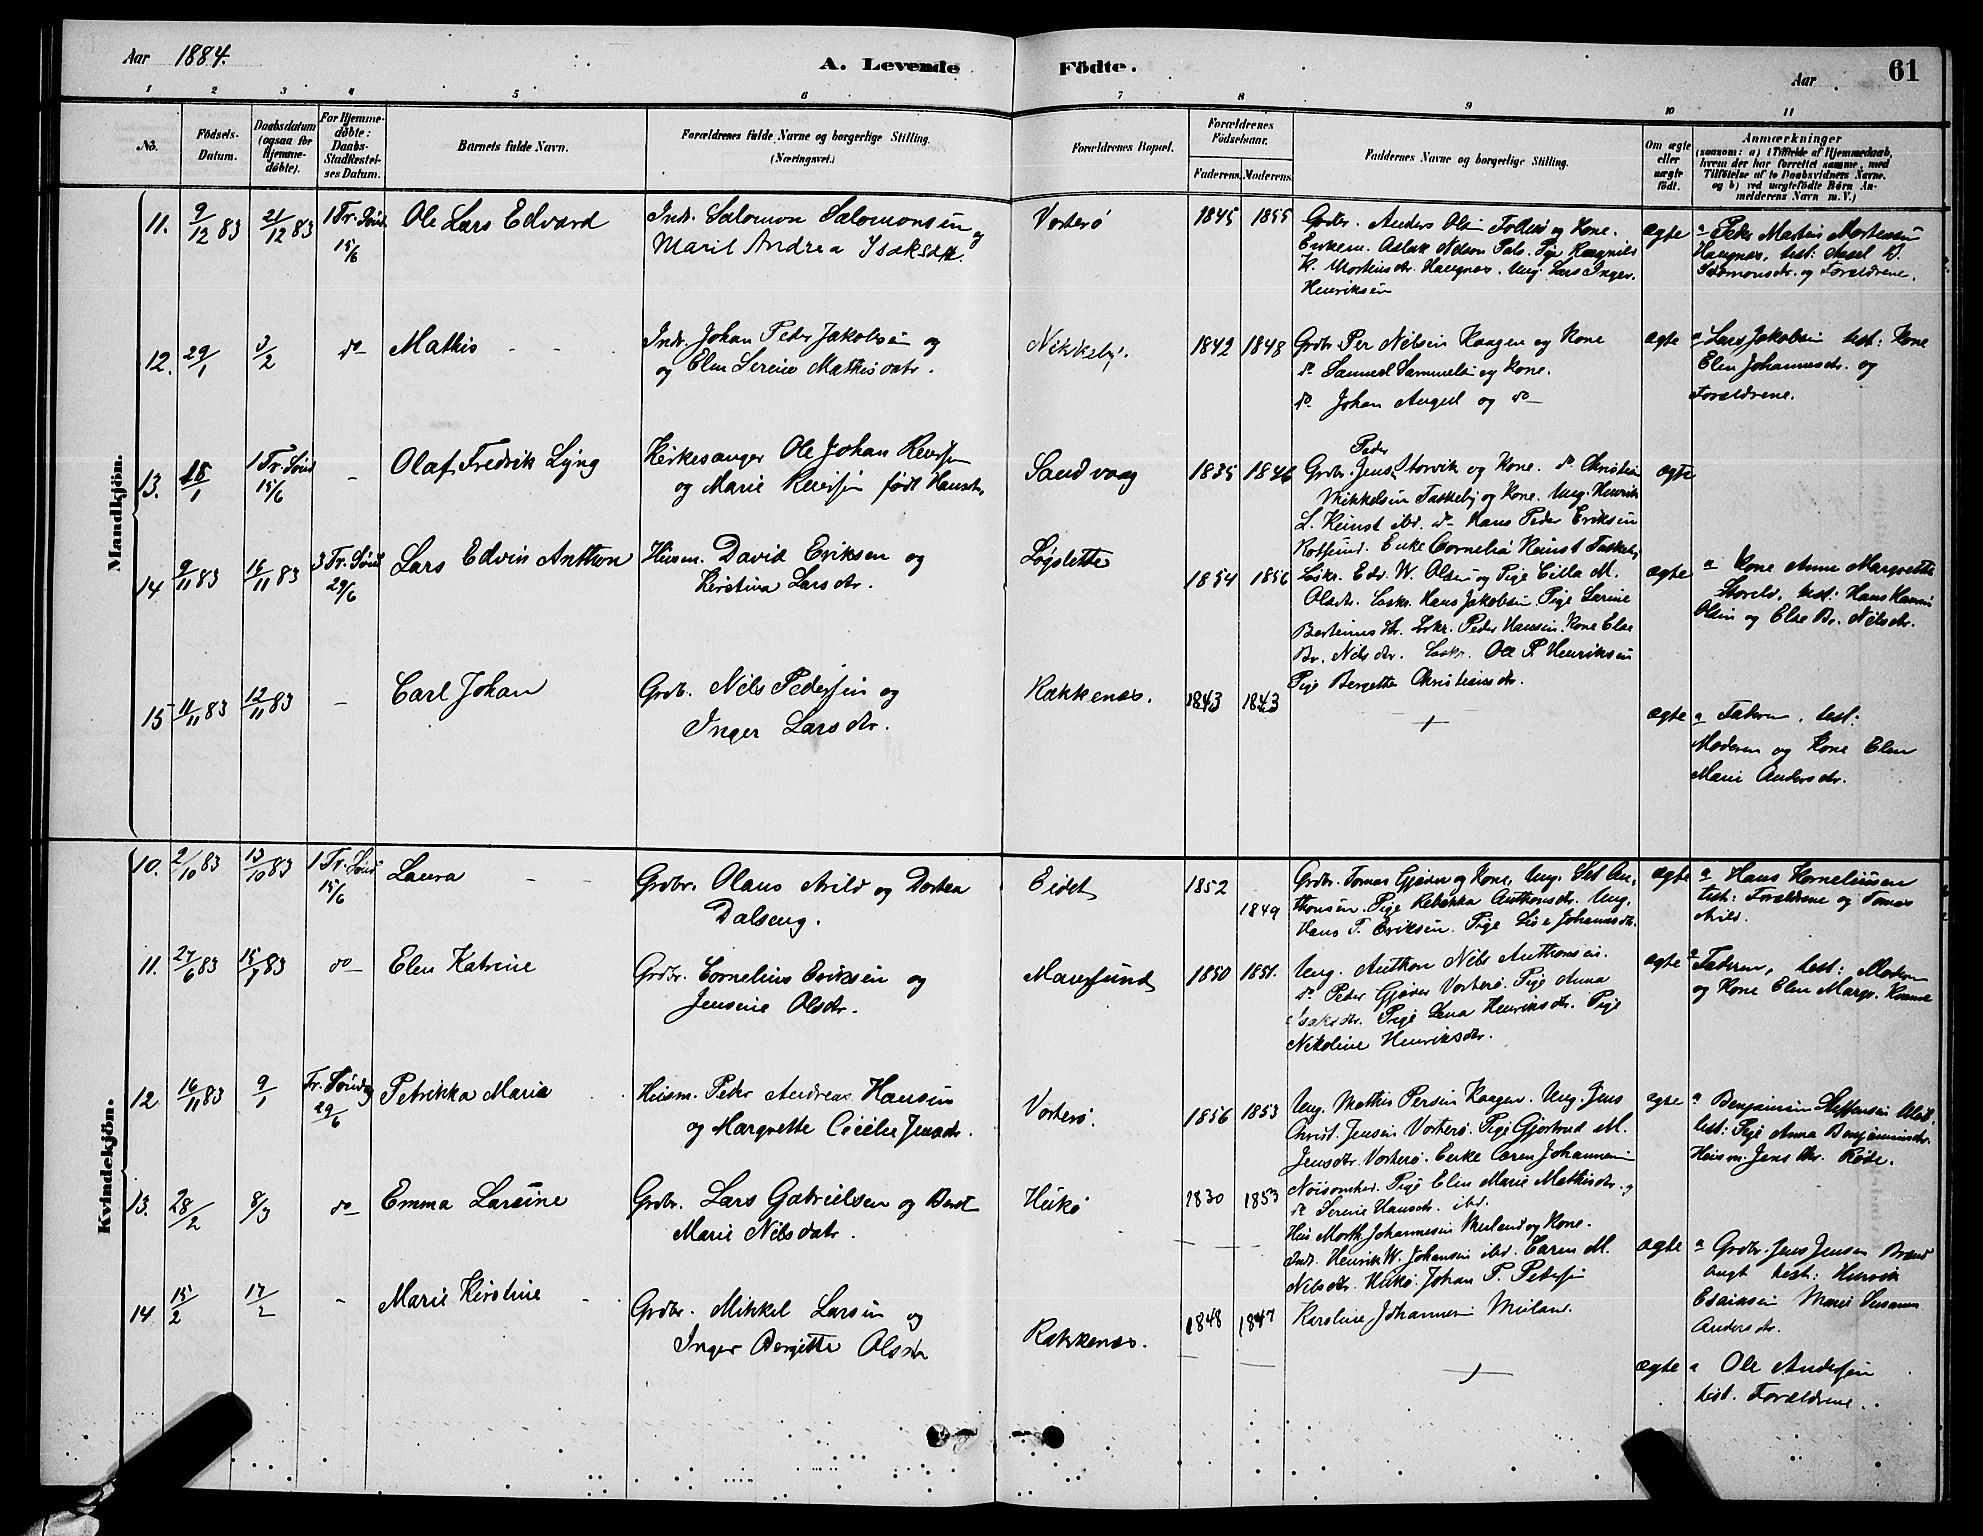 Aar 1884.
A. Levende Födte.
Aar
61
1 2 3 4 5 6 7 8 9 10 11
No.
Födsels-
Datum.
Daabsdatum
(ogsaa for
Hjemme-
döbte).
For Hjemme-
döbte:
Daabs-
Stadfæstel-
ses Datum.
Barnets fulde Navn.
Forældrenes fulde Navne og borgerlige Stilling.
(Næringsvei.)
Forældrenes Bopæl.
Forældrenes
Födselsaar.
Faderens. Moderens.
Faddernes Navne og borgerlige Stilling.
Om ægte
eller
uægte
født.
Anmærkninger
(saasom: a) i Tilfælde af Hjemmedaab,
hvem der har forrettet samme, med
Tilföielse af to Daabsvidners Navne.
og b) ved uægtefödte Börn An-
melderens Navn m. V.)
Mandkjön.
11. 9/12 83 21/12 83 1 Tr. Sønd 15/6 Ole Lars Edvard
Indr. Salomon Salomonsen og
Marit Andrea Isaksdtr.
Vorterø 1845 1855
Grdbr. Anders Olsen Follesø og Kone.
Enkem. Aslak Nelsen Pals. Pige Ragnild
K. Mortensdtr. Haugnæs. Ung. Lars Inger.
Henriksen
ægte
a Peder Martin Mortensen
Haugnæs, test: Aksel D.
Salomonsdr. og Forældrene.
12. 29/1 3/2 do Mathis
Indr. Johan Peder Jakobsen og
og Elen Serine Mathisdatr.
Nikkeby. 1842 1848
Grdbr. Per Nilsen Kaagen og Kone
do Samuel Samuels. og Kone.
do Johan August og do
ægte
a Lars Jakobsen test: Kone
Elen Johannesdr. og
Forældrene.
13. 18/1 1 Tr. Sønd 15/6 - Olaf Fredrik Lyng
Kirkesanger Ole Johan Reiersen
og Marie Reiersen født Hansdtr
Sandvaag 1835 1846
Peder
Grdbr. Jens Storvik og Kone. do Christian
Mikkelsen Taskeby og Kone. Ung. Henrik
L. Kunst ibd. do Hans Peder Eriksen
Rotsund. Enke Cornelia Kunst Taskeby
ægte
14 9/11 83 16/11 83 3 Tr. Sønd 29/6 Lars Edvin Antthon
Husm. David Eriksen og
Kirstina Larsdtr.
Løgslette 1854 1856
Løskr. Edv. W. Olsen og Pige Cilla M.
Olsdtr. Løskr. Hans Jakobsen Pige Sarine
Berteinusdtr. Løskr. Peder Hansen. Kone Else
Br. Nilsdtr. Løskr. Ole P. Henriksen
Pige Bergette Christiansdtr.
ægte
a Kone Anne Margrette
test: Hans
Olsen og Else Br. Nilsdtr.
15 11/11 83 12/11 83 - Carl Johan
Grdb. Nils Pedersen og
Inger Larsdtr.
Rakkenæs. 1843 1843
+
ægte
a Faderen, test:
Moderen og Kone Elen
Marie Andersdtr.
Kvindekjön.
10. 2/10 83 13/10 83 1 Tr. Sønd 15/6 Laura
Grdbr. Olaus Arild og Dorthea
Dalseng.
Eidet 1852 1849
Grdbr. Tomas Gjæver og Kone, Ung. Set An-
thonsen. Pige Rebekka Anthonsdtr. Ung.
Hans P. Eriksen. Pige Lise Johansdtr.
ægte
a Hans Korneliusen
test: Forældrene og Tomas
Arild.
11. 27/6 83 15/7 83 do Elen Katrine
Grdbr. Cornelius Eriksen og
Jensine Olsdtr.
Maursund 1850 1851.
Ung. Anthon Nils Anthonsen.
do Peder Gjæver Vorterø. Pige Anna
Isaksdtr. Pige Lena Henriksdtr. Pige
Nikoline Henriksdtr.
ægte
a Faderen, test: Moderen
og Kone Elen Margr.
12 16/11 83 9/1 Tr. Søndag 29/6 Petrikka Marie
Husm. Peder Andreas Hansen
og Margrette Cicilie Jensdr.
Vorterø. 1856 1853
Ung. Mathis Persen Kaagen. Ung. Jens
Christ. Jensen Vorterø. Pige Gjertrud M.
Jensdtr. Vorterø. Enke Caren Johannesen
Nøisomhed. Pige Elen Marie Mathisdtr. og
do Serine Hansdtr. ibd.
ægte
a Benjamin Steffensen
test: Pige Anna Benjaminsdtr.
Husm. Jens Chr. Røde.
13. 28/2 8/3 do Emma Larsine
Grdbr. Lars Gabrielsen og Berit
Marie Nilsdatr.
Hukø 1830 1853
Hus Morth. Johannesen Meiland og Kone.
Indr. Henrik W. Johansen ibd. Caren M.
Nilsdtr. Hukø. Johan P. Peders.
Karoline Johannesen Meiland.
ægte
a Grdbr. Jens Jensen
test: Henrik
Esaiassen Marie Susanna
Andersdtr.
14 15/2 17/2 - Marie Kirstine
Grdbr. Mikkel Larsen og
Inger Bergitte Olsdtr
Rakkenæs. 1848 1847
+
ægte
a Ole Andersen
test. Forældrene.